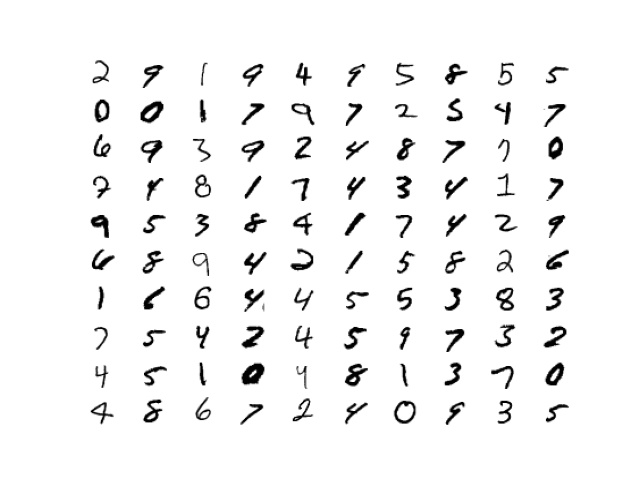 2 9 1 9 4 9 5 8 5 5
0 0 1 7 9 7 2 5 4 7
6 9 3 9 2 4 8 7 7 0
7 4 8 1 7 4 3 4 1 7
9 5 3 8 4 1 7 4 2 9
6 8 9 4 2 1 5 8 2 6
1 6 6 4 4 5 5 3 8 3
7 5 4 2 4 5 9 7 3 2
4 5 1 0 4 8 1 3 7 0
4 8 6 7 2 4 0 9 3 5